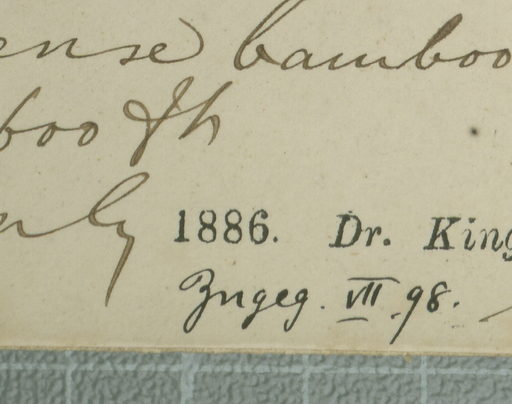 ense bamboo
boo &h
rly
1886. Dr. King
Zugeg. VII. 98.